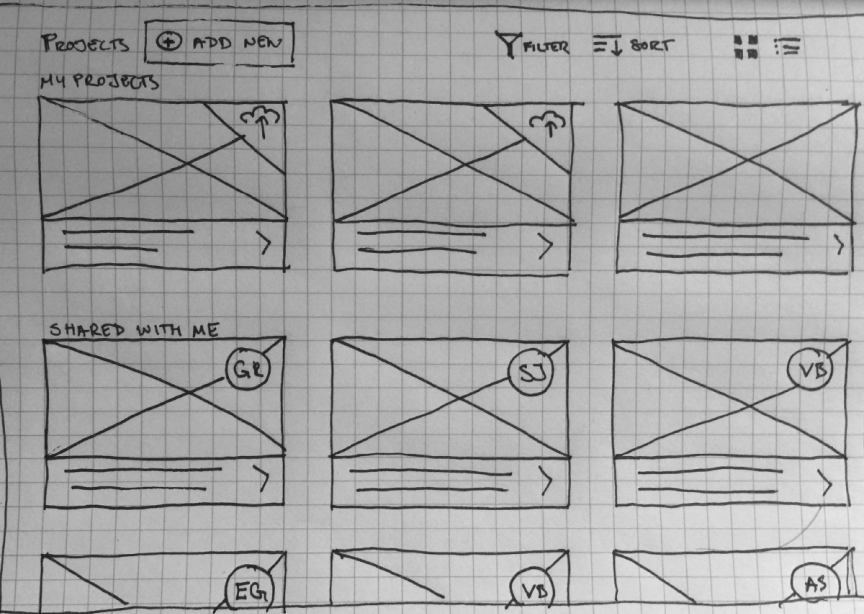 PROJECTS ADD NEW FILTER SORT
MY PROJECTS
SHARED WITH ME
GR SJ VB
EG VB AS